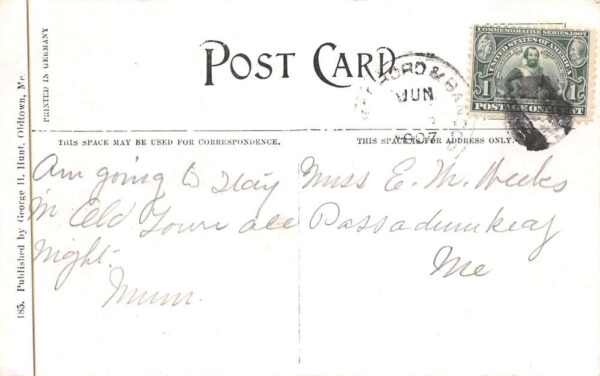 POST CARD
COMMEMORATIVE SERIES 1907
UNITED STATES OF AMERICA
1 1
POSTAGE ONE CENT
FORD & BA
JUN
1907
THIS SPACE MAY BE USED FOR CORRESPONDENCE.
THIS SPACE IS FOR ADDRESS ONLY.
Am going to stay
in Old Town all
night.
Mum.
Miss E. M. Weeks
Passadumkeag
Me
PRINTED IN GERMANY
185. Published by George H. Hunt, Oldtown, Me.